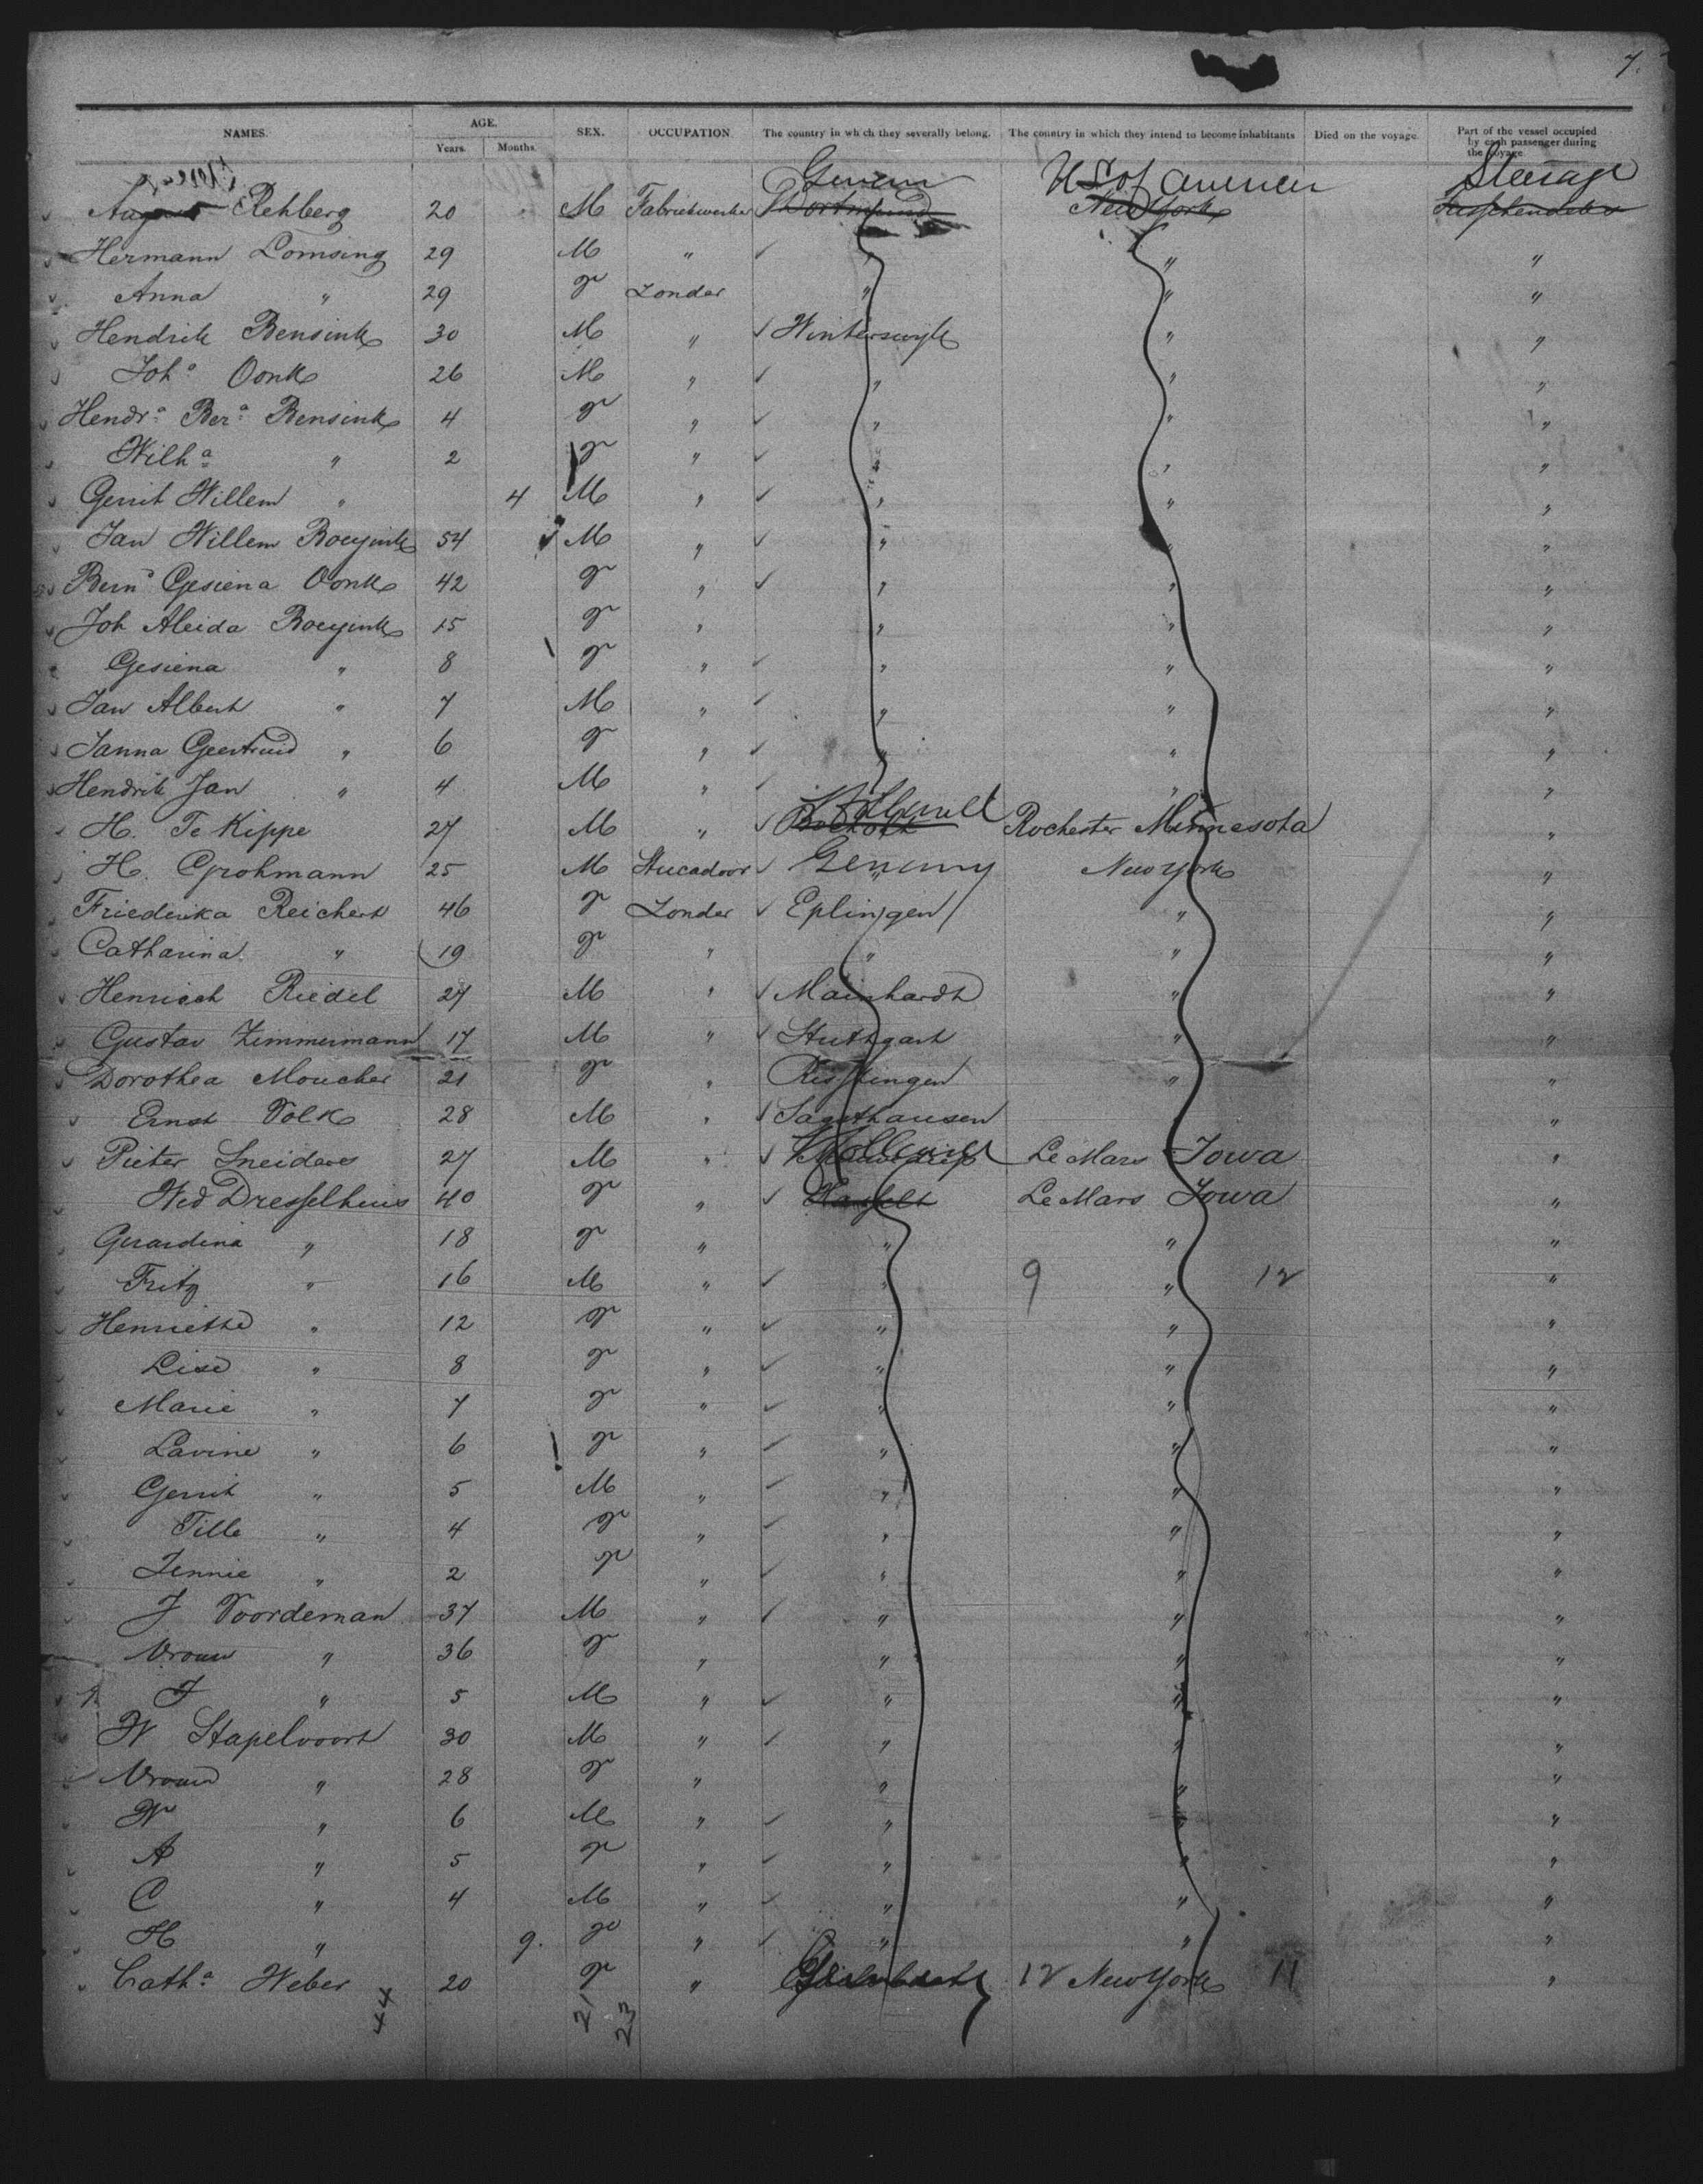 7.
NAMES. AGE. SEX. OCCUPATION. The country in which they severally belong. The country in which they intend to become inhabitants Died on the voyage. Part of the vessel occupied by each passenger during the voyage
Years. Months.
German US of America Steerage
August Rehberg 20 M Fabriekwerker Dortmund New York
Hermann Lomsing 29 M " " " "
Anna " 29 F Zonder " " "
Hendrik Bensink 30 M " Winterswyk " "
Joh.a Oonk 26 M " " " "
Hendr.a Ber.a Bensink 4 F " " " "
Wilh.a " 2 F " " " "
Gerrit Willem " 4 M " " " "
Jan Willem Boeyink 54 M " " " "
Bern.a Gesiena Oonk 42 F " " " "
Joh Aleida Boeyink 15 F " " " "
Gesiena " 8 F " " " "
Jan Albert " 7 M " " " "
Janna Geertruid " 6 F " " " "
Hendrik Jan " 4 M " " "
H. Te Kippe 27 M " Bocholt Rochester Minnesota "
H. Grohmann 25 M Stucadoor Germany New York "
Friederika Reichert 46 F Zonder Eplingen " "
Catharina " 19 F " " " "
Henrich Riedel 27 M " Mainhardt " "
Gustav Zimmermann 17 M " Stuttgart " "
Dorothea Moucher 21 F " " "
Ernst Volk 28 M " "
Pieter Sneiders 27 M " Le Mars Iowa "
Wed Dresselhuis 40 F " Hasselt Le Mars Iowa "
Gerardina " 18 F " " " "
Fritz " 16 M " " 9 " 12 "
Henriette " 12 F " " " "
Lise " 8 F " " " "
Marie " 7 F " " " "
Lavine " 6 F " " " "
Gerrit " 5 M " " " "
Tille " 4 F " " " "
Jennie " 2 F " " " "
J Voordeman 37 M " " " "
Vrouw " 36 F " " " "
J " 5 M " " " "
W Stapelvoort 30 M " " " "
Vrouw " 28 F " " " "
W " 6 M " " " "
A " 5 F " " " "
C " 4 M " " " "
H " 9. F " " " "
Cath.a Weber 20 F " 12 New York 11 "
44 21 23